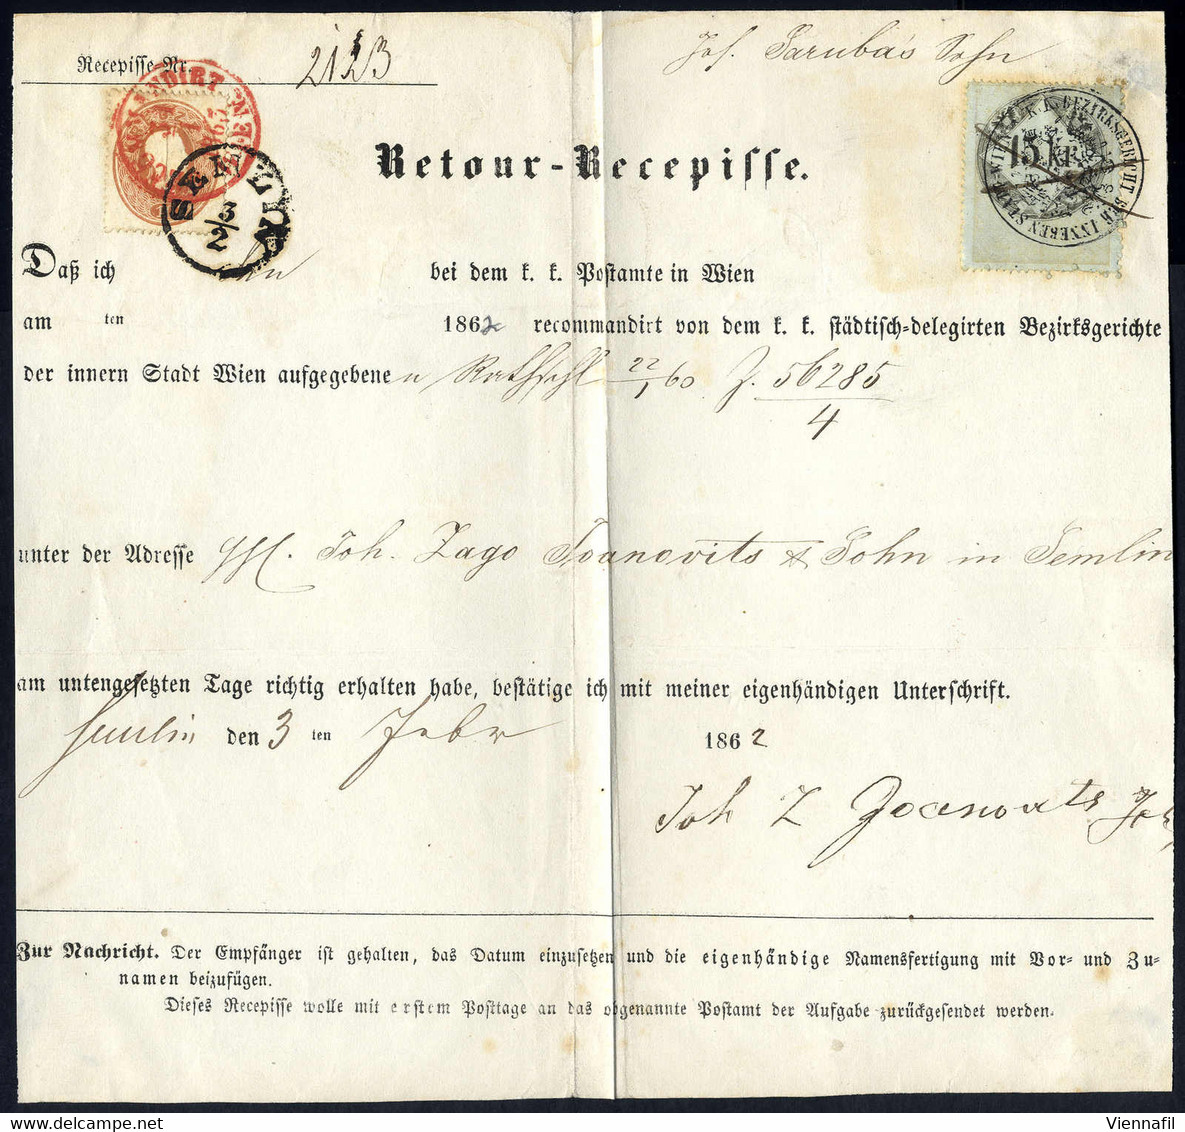 Recepisse Nr. 2123
Jos. Sarubas Sohn
RECOMMANDIRT WIEN
SEMLIN
3/2
15 kr
K. K. BEZIRKSGERICHT DER INNEREN STADT WIEN
Retour-Recepisse.
Daß ich bei dem k. k. Postamte in Wien
am ten 1862 recommandirt von dem k. k. städtisch-delegirten Bezirksgerichte
der innern Stadt Wien aufgegebenen Rathschl 22/1 60 Z. 56285/4
unter der Adresse Joh. Zago Joanovits & Sohn in Semlin
am untengesetzten Tage richtig erhalten habe, bestätige ich mit meiner eigenhändigen Unterschrift.
Semlin den 3 ten Febr 1862
Joh Z Joanovits
Zur Nachricht. Der Empfänger ist gehalten, das Datum einzusetzen und die eigenhändige Namensfertigung mit Vor- und Zu-
namen beizufügen.
Dieses Recepisse wolle mit erstem Posttage an das obgenannte Postamt der Aufgabe zurückgesendet werden.
Viennafil